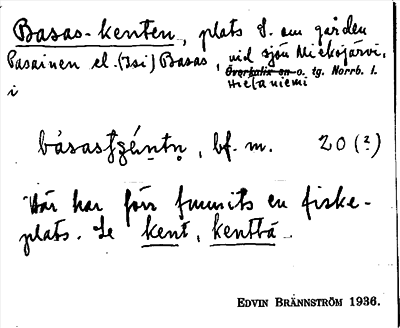 Basas-kenten, plats S. om gården
Pasainen el. (Isi) Basas, vid sjön Miekojärvi,
Överkalix sn o. tg. Norrb. l.
Hietaniemi
i
bf. m. 20 (2)
Här har förr funnits en fiske-
plats. Se kent, kenttä
EDVIN BRÄNNSTRÖM 1936.